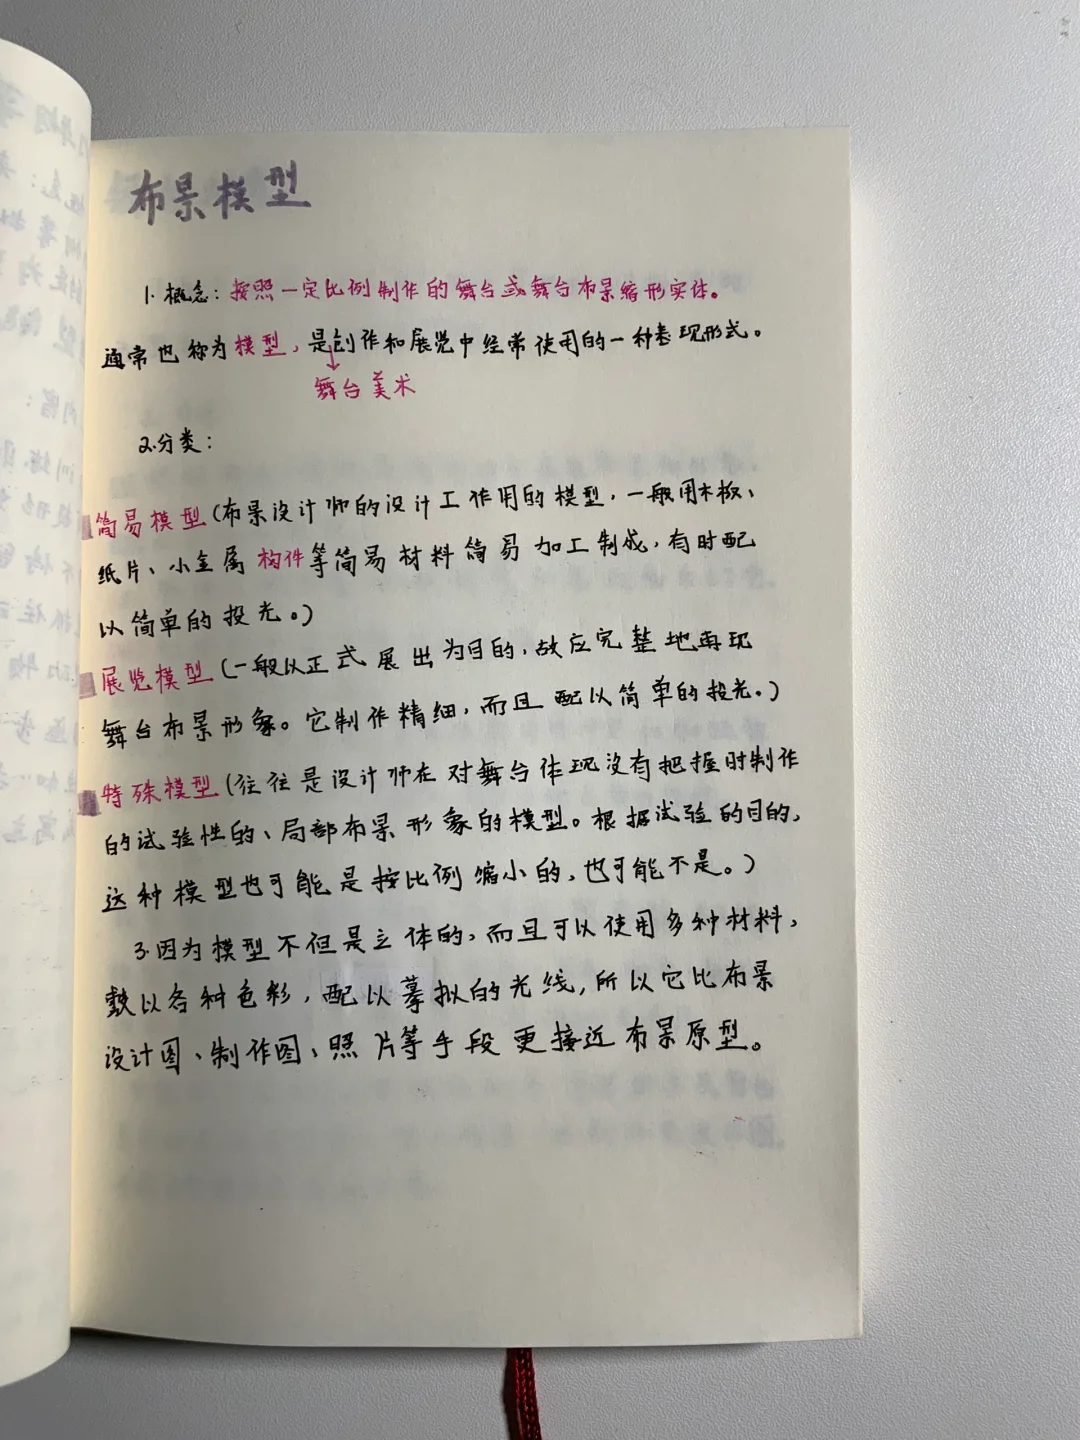 布景模型
1.概念：按照一定比例制作的舞台或舞台布景缩形实体。
通常也称为模型，是创作和展览中经常使用的一种表现形式。
↓
舞台美术
2.分类：
简易模型(布景设计师的设计工作用的模型，一般用木板、
纸片、小金属构件等简易材料简易加工制成，有时配
以简单的投光。)
展览模型(一般以正式展出为目的，故应完整地再现
舞台布景形象。它制作精细，而且配以简单的投光。)
特殊模型(往往是设计师在对舞台体现没有把握时制作
的试验性的、局部布景形象的模型。根据试验的目的，
这种模型也可能是按比例缩小的，也可能不是。)
3.因为模型不但是立体的，而且可以使用多种材料，
敷以各种色彩，配以摹拟的光线，所以它比布景
设计图、制作图、照片等手段更接近布景原型。